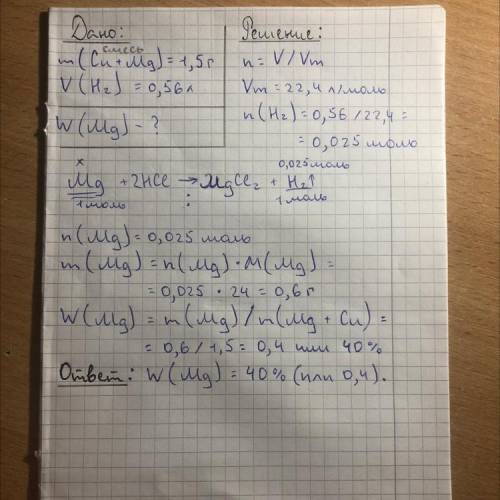 Дано:
смесь
m(Cu+Mg)=1,5г
V(H₂) = 0,56л
W(Mg) - ?
Решение:
n = V/Vm
Vm = 22,4 л/моль
n(H₂) = 0,56/22,4 =
= 0,025 моль
x 0,025 моль
Mg + 2HCl → MgCl₂ + H₂↑
1 моль : 1 моль
n(Mg) = 0,025 моль
m(Mg) = n(Mg) · M(Mg) =
= 0,025 · 24 = 0,6 г
W(Mg) = m(Mg)/m(Mg + Cu) =
= 0,6/1,5 = 0,4 или 40%
Ответ: W(Mg) = 40% (или 0,4).